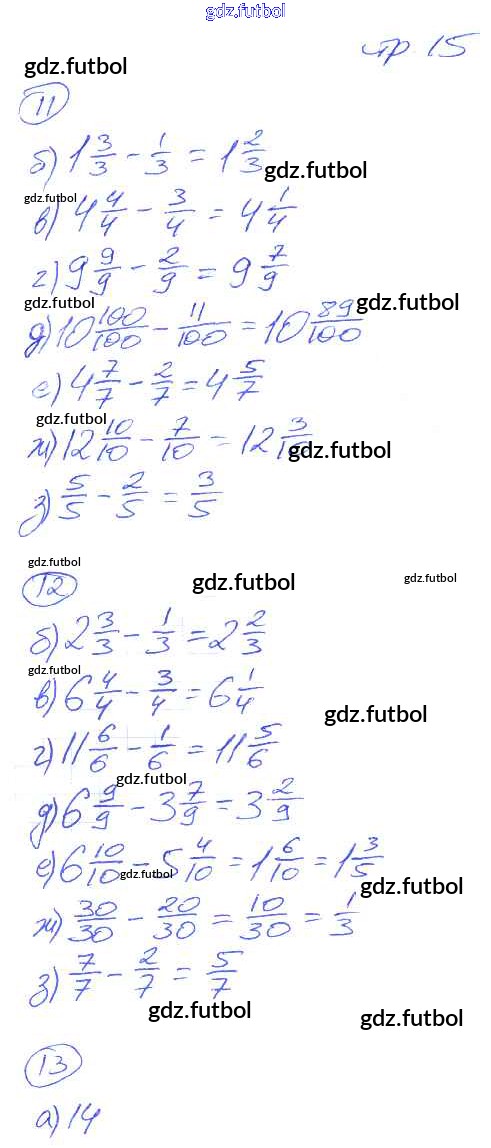 gdz.futbol
стр 15
gdz.futbol
11
б) 1 3/3 - 1/3 = 1 2/3
gdz.futbol
gdz.futbol
в) 4 4/4 - 3/4 = 4 1/4
г) 9 9/9 - 2/9 = 9 7/9
gdz.futbol gdz.futbol
д) 10 100/100 - 11/100 = 10 89/100
е) 4 7/7 - 2/7 = 4 5/7
gdz.futbol
ж) 12 10/10 - 7/10 = 12 3/10
gdz.futbol
з) 5/5 - 2/5 = 3/5
gdz.futbol
12 gdz.futbol gdz.futbol
б) 2 3/3 - 1/3 = 2 2/3
gdz.futbol
в) 6 4/4 - 3/4 = 6 1/4
gdz.futbol
г) 11 6/6 - 1/6 = 11 5/6
gdz.futbol
д) 6 9/9 - 3 7/9 = 3 2/9
е) 6 10/10 - 5 4/10 = 1 6/10 = 1 3/5
gdz.futbol
gdz.futbol
ж) 30/30 - 20/30 = 10/30 = 1/3
з) 7/7 - 2/7 = 5/7
gdz.futbol
gdz.futbol
13
а) 14